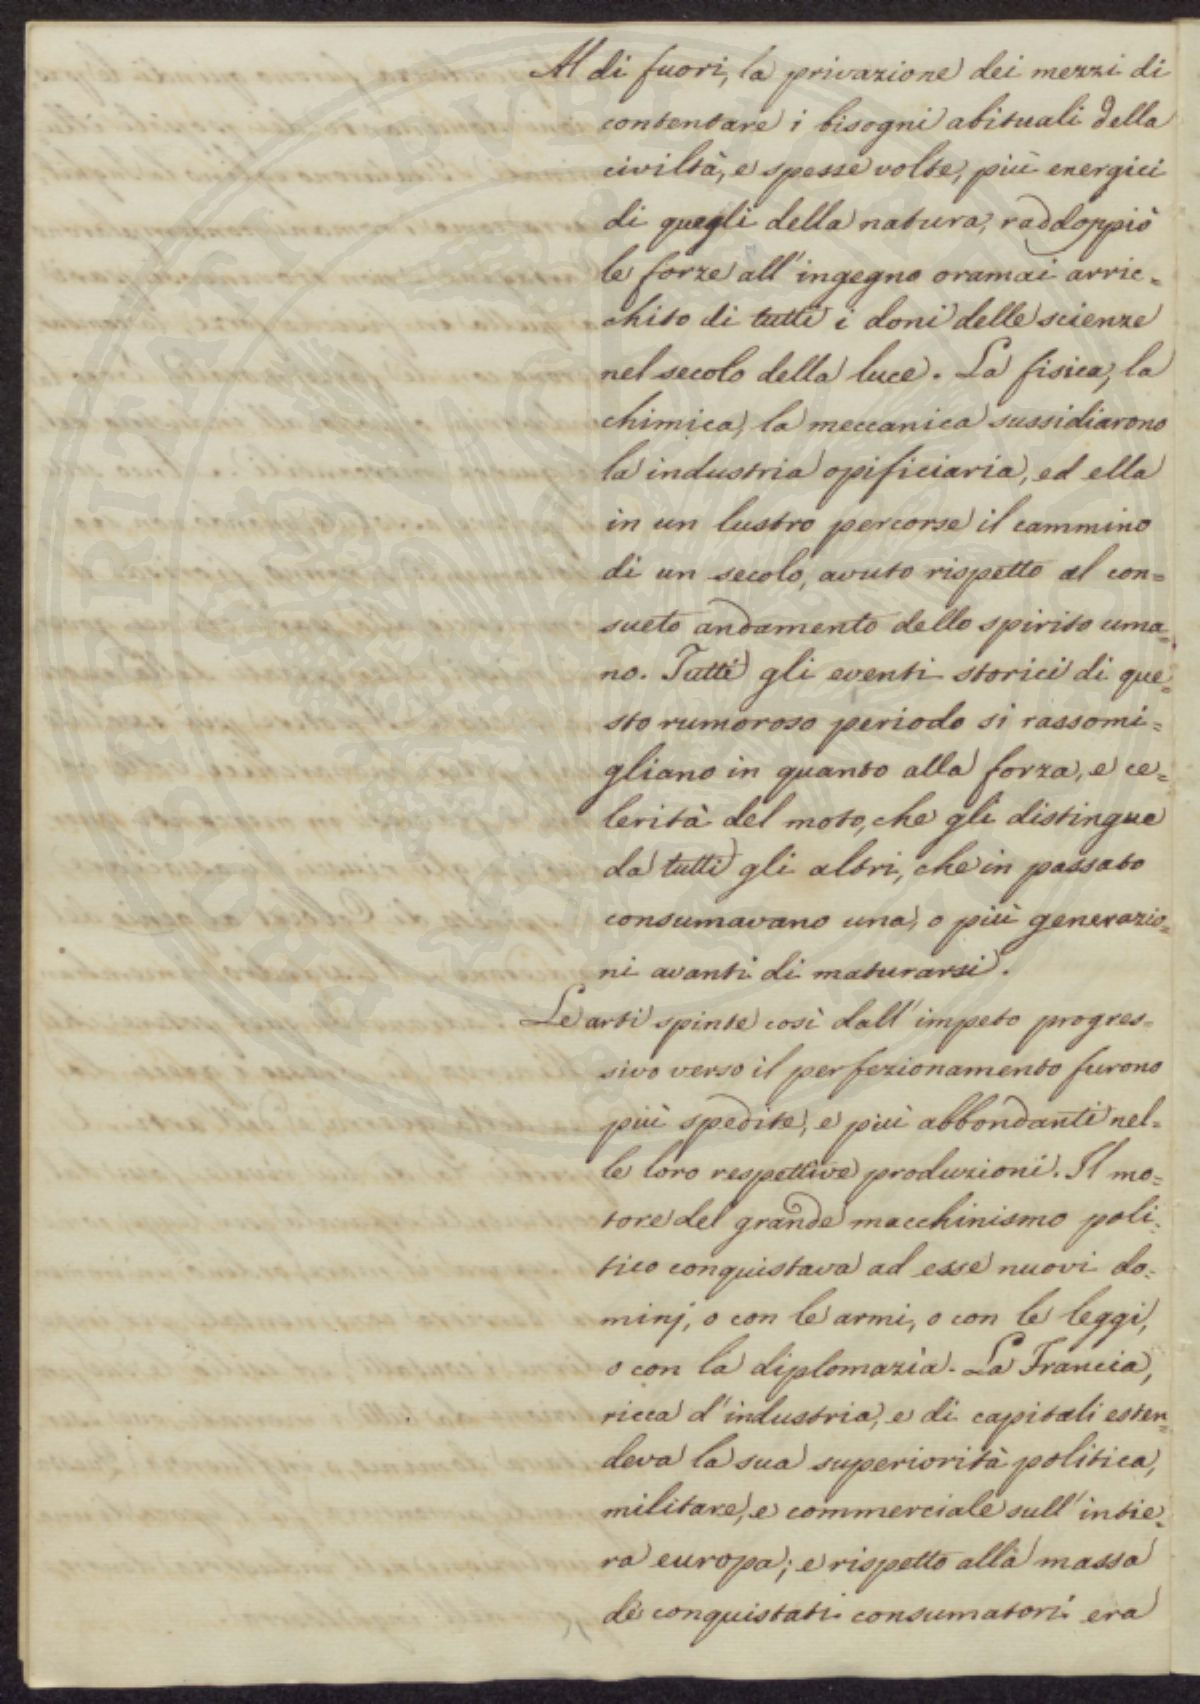 Al di fuori, la privazione dei mezzi di
contentare i bisogni abituali della
civiltà, e spesse volte, più energici
di quegli della natura, raddoppiò
le forze all'ingegno oramai arric=
chito di tutti i doni delle scienze
nel secolo della luce. La fisica, la
chimica, la meccanica sussidiarono
la industria opificiaria, ed ella
in un lustro percorse il cammino
di un secolo, avuto rispetto al con=
sueto andamento dello spirito uma=
no. Tutti gli eventi storici di que=
sto rumoroso periodo si rassomi=
gliano in quanto alla forza, e ce=
lerità del moto, che gli distingue
da tutti gli altri, che in passato
consumavano una, o più generazio=
ni avanti di maturarsi.
Le arti spinte così dall'impeto progres=
sivo verso il perfezionamento furono
più spedite, e più abbondanti nel=
le loro respettive produzioni. Il mo=
tore del grande macchinismo poli=
tico conquistava ad esse nuovi do=
minj, o con le armi, o con le leggi,
o con la diplomazia. La Francia,
ricca d'industria, e di capitali esten=
deva la sua superiorità politica,
militare, e commerciale sull'intie=
ra europa; e rispetto alla massa
de conquistati consumatori era